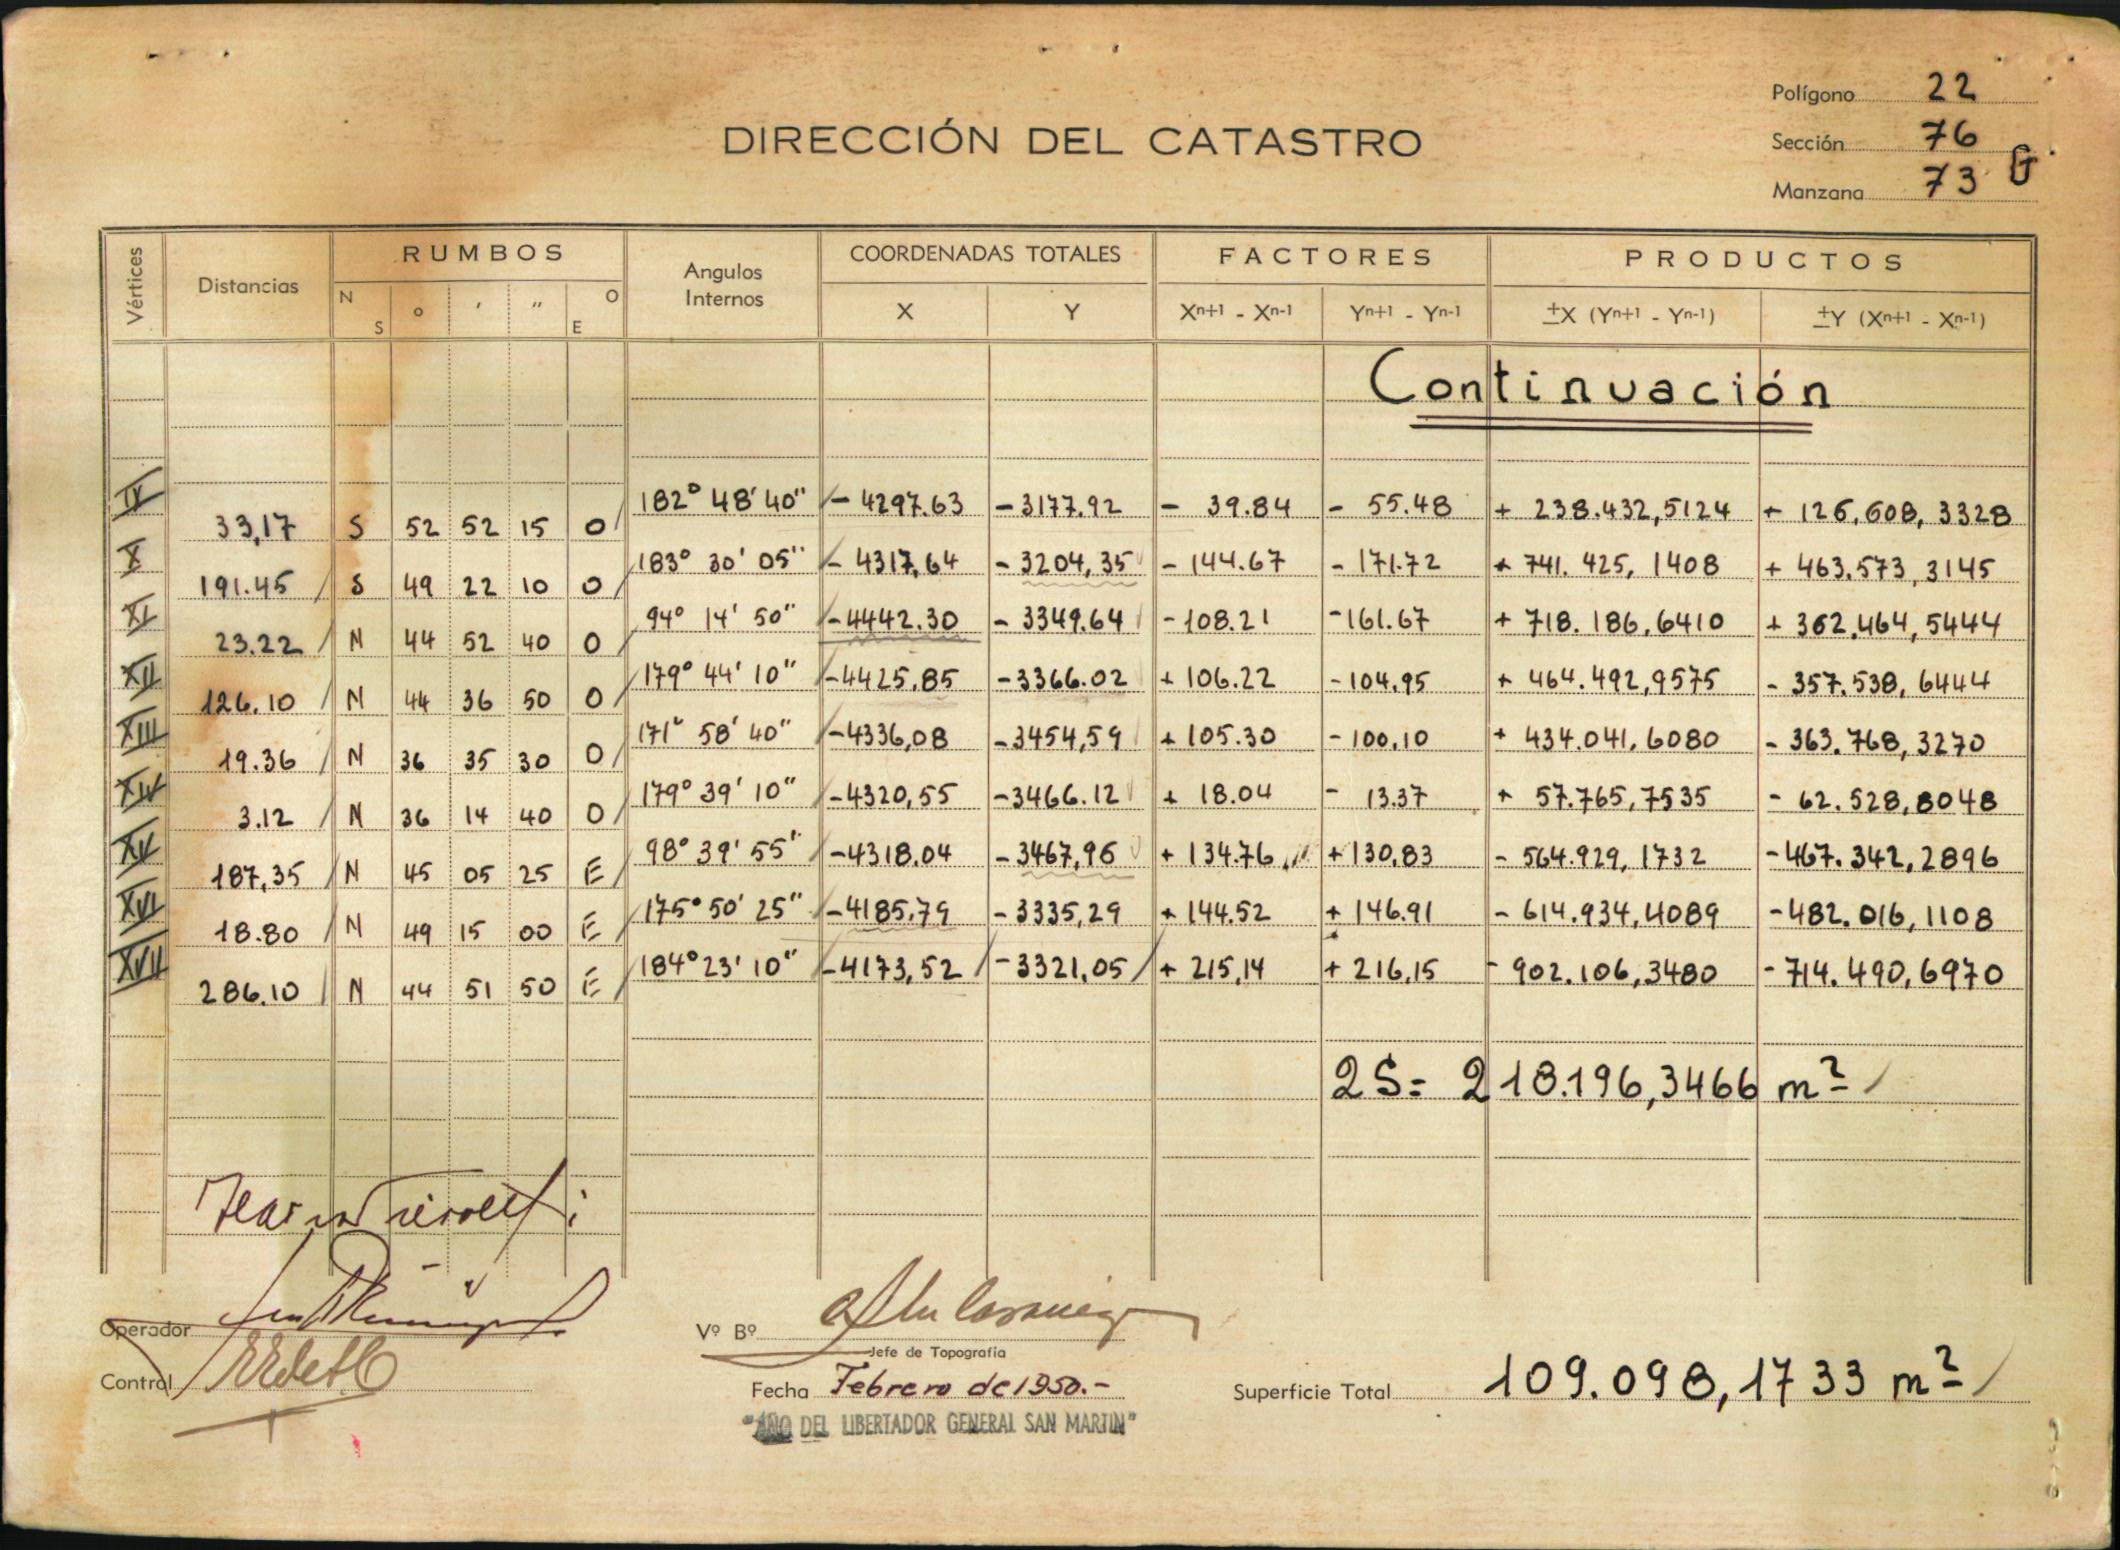 Polígono 22
DIRECCIÓN DEL CATASTRO
Sección 76
Manzana 73 G
Vértices Distancias RUMBOS Angulos Internos COORDENADAS TOTALES FACTORES PRODUCTOS
N S ° ' " O E X Y Xn+1 - Xn-1 Yn+1 - Yn-1 ±X (Yn+1 - Yn-1) ±Y (Xn+1 - Xn-1)
Continuación
IX 182° 48' 40" - 4297.63 - 3177.92 - 39.84 - 55.48 + 238.432,5124 + 126.608,3328
33,17 S 52 52 15 O
X 183° 30' 05" - 4317,64 - 3204,35 - 144.67 - 171.72 + 741.425,1408 + 463.573,3145
191.45 S 49 22 10 O
XI 94° 14' 50" -4442.30 - 3349.64 -108.21 -161.67 + 718.186,6410 + 362.464,5444
23.22 N 44 52 40 O
XII 179° 44' 10" -4425,85 -3366.02 + 106.22 -104,95 + 464.492,9575 - 357.538,6444
126.10 N 44 36 50 O
XIII 171° 58' 40" -4336,08 -3454,59 + 105.30 -100,10 + 434.041,6080 - 363.768,3270
19.36 N 36 35 30 O
XIV 179° 39' 10" -4320,55 -3466.12 + 18.04 - 13.37 + 57.765,7535 - 62.528,8048
3.12 N 36 14 40 O
XV 98° 39' 55" -4318.04 - 3467,96 + 134.76 +130,83 - 564.929,1732 -467.342,2896
187,35 N 45 05 25 E
XVI 175° 50' 25" -4185.79 - 3335,29 + 144.52 + 146.91 - 614.934,4089 -482.016,1108
18.80 N 49 15 00 E
XVII 184° 23' 10" -4173,52 -3321,05 + 215,14 + 216,15 - 902.106,3480 -714.490,6970
286.10 N 44 51 50 E
2 S = 218.196,3466 m²
Operador
Vº Bº
Jefe de Topografía
Control
Fecha Febrero de 1950.-
Superficie Total 109.098,1733 m²
"AÑO DEL LIBERTADOR GENERAL SAN MARTIN"